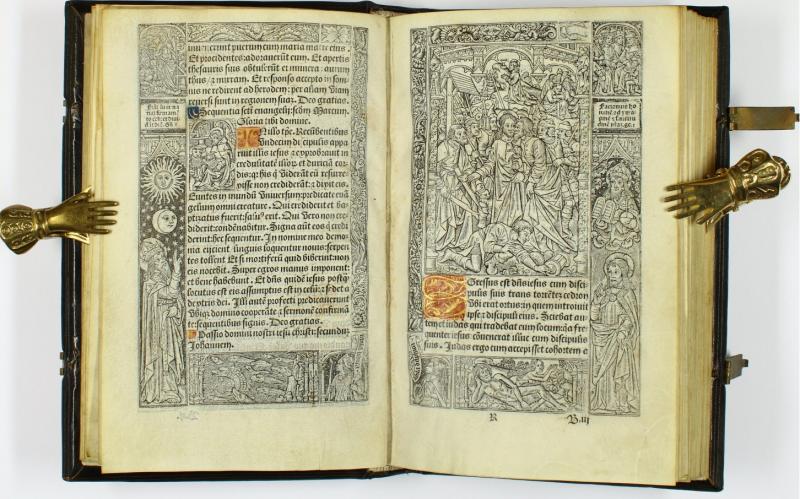 inuenerunt puerum cum maria matre eius.
Et procidentes adorauerunt eum. Et apertis
thesauris suis obtulerũt ei munera: aurum
thus/ ⁊ mirram. Et responso accepto in som
nis ne redirent ad herodem: per aliam viam
reuersi sunt in regionem suaʒ. Deo gratias.
Sequentia scti euangelij: scd̃m Marcum.
Gloria tibi domine.
Illo tp̃e. Recũbentibus
vndecim discipulis appa
ruit illis iesus: ⁊ exprobrauit in
credulitatẽ illoꝝ et duriciã cor
dis: qꝛ his q̃ viderãt eũ resurre
xisse non crediderãt: ⁊ dixit eis.
Euntes in mundũ vniuersum: predicate euã
gelium omni creature. Qui crediderit et ba-
ptizatus fuerit: saluꝰ erit. Qui vero non cre
diderit: condẽnabitur. Signa aũt eos q̃ cre
diderint: hec sequentur. In nomine meo demo-
nia eijcient linguis loquentur nouis: serpen
tes tollent. Et si mortiferũ quid biberint: non
eis nocebit. Super egros manus imponent:
et bene habebunt. Et dñs quidẽ iesus postq̃
locutus est eis assumptus est in celũ: ⁊ sedet a
dextris dei. Illi autẽ profecti predicauerunt
vbiqꝫ domino cooperãte ⁊ sermonẽ confirmã
te: sequentibus signis. Deo gratias.
Passio domini nostri iesu christi: secundũ
Johannem.
Faciamus ho
EGressus est dñs iesus cum disci
pulis suis trans torrẽtẽ cedron
vbi erat ortus: in quem introiuit
ipse ⁊ discipuli eius. Sciebat au
tem et iudas qui tradebat eum locum: qꝛ fre
quenter iesus cõuenerat illuc cum discipulis
suis. Judas ergo cum accepisset cohortem a
R B.iij